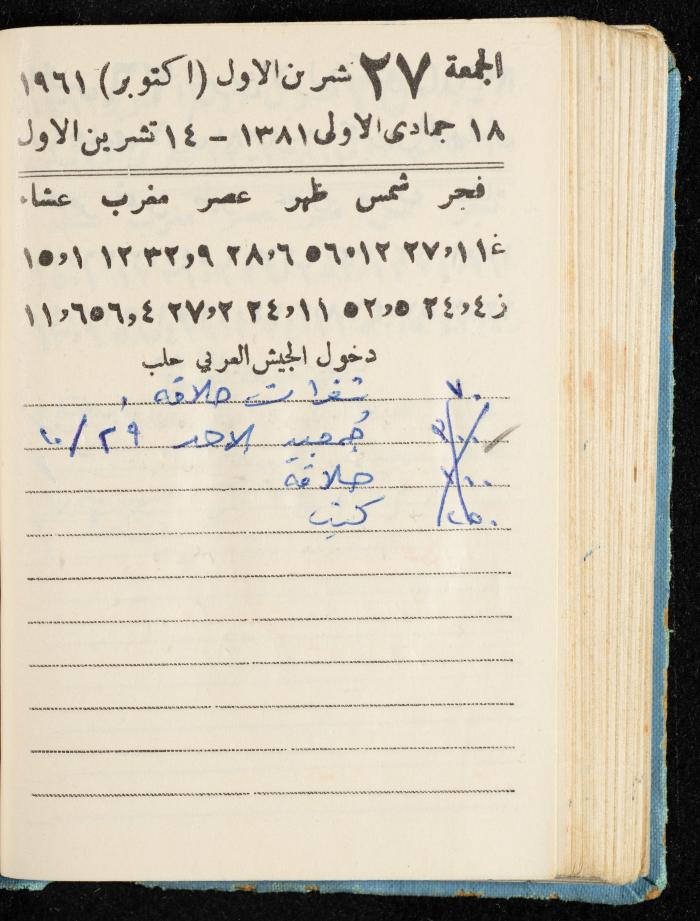 الجمعة ٢٧ تشرين الاول (اكتوبر) ١٩٦١
١٨ جمادى الاولى ١٣٨١ – ١٤ تشرين الاول
فجر شمس ظهر عصر مغرب عشاء
غ ١١,٢٧ ١٢,٥٦ ٦,٢٨ ٩,٣٢ ١٢ ١,١٥
ز ٤,٢٤ ٥,٥٢ ١١,٢٤ ٢,٢٧ ٤,٥٦ ٦,١١
دخول الجيش العربي حلب
٧٠ شفرات حلاقة
الاحد ٢٩/١٠
حلاقة
كتب